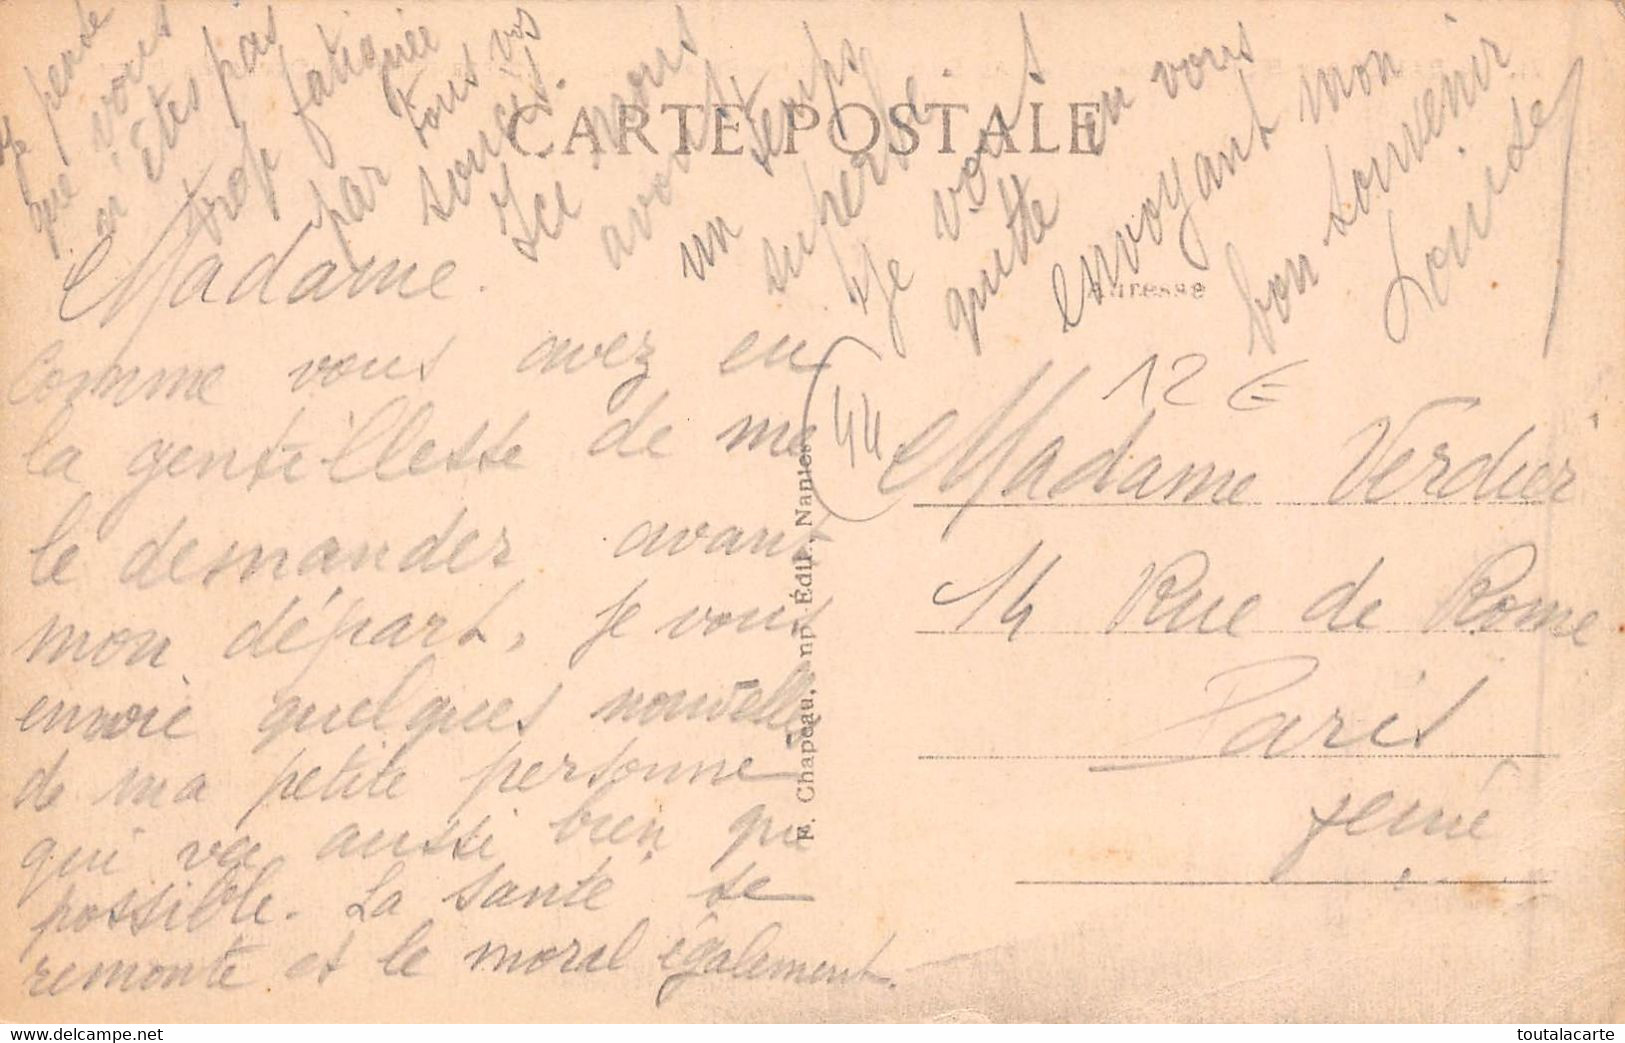 CARTE POSTALE
Madame.
Comme vous avez eu
la gentillesse de me
le demander avant
mon départ, je vous
envoie quelques nouvelles
de ma petite personne
qui va aussi bien que
possible. La santé se
remonte et le moral également.
Je pense
que vous
n'êtes pas
trop fatiguée
par tous vos
soucis.
Ici nous
avons
un temps
superbe.
Je vous
quitte en vous
envoyant mon
bon souvenir
Louise
F. Chapeau, Imp. Édit., Nantes
Adresse
44
12 €
Madame Verdier
14 Rue de Rome
Paris
toutalacarte
www.delcampe.net